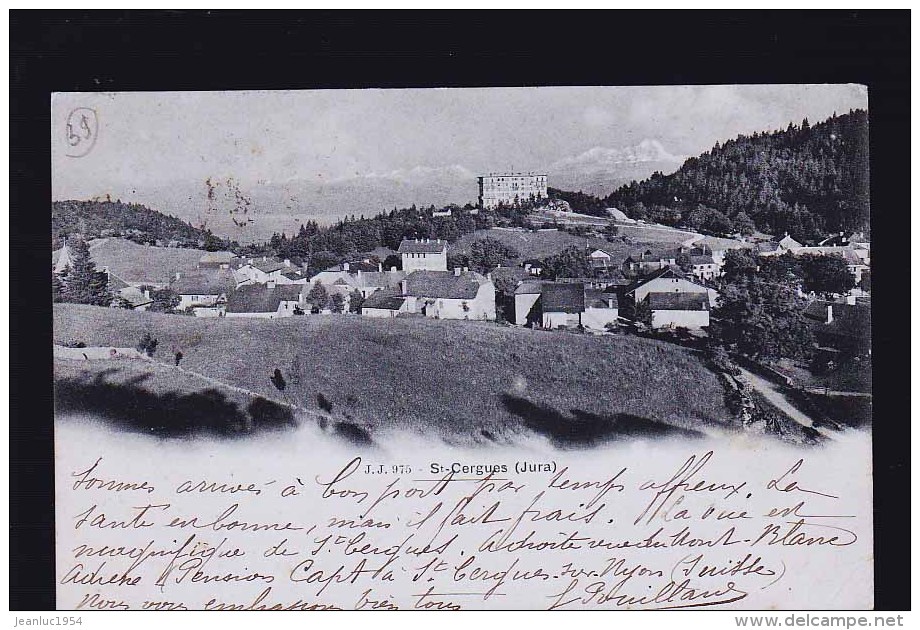 J.J. 975 - St-Cergues (Jura)
Sommes arrivés à bon port par temps affreux. La
santé en bonne, mais il fait frais. La vue est
magnifique de St Cergues. A droite vue du Mont-Blanc
Adresse Pension Capt à St Cergues-sur-Nyon (Suisse)
Nous vous embrassons bien tous
jeanluc1954
www.delcampe.net